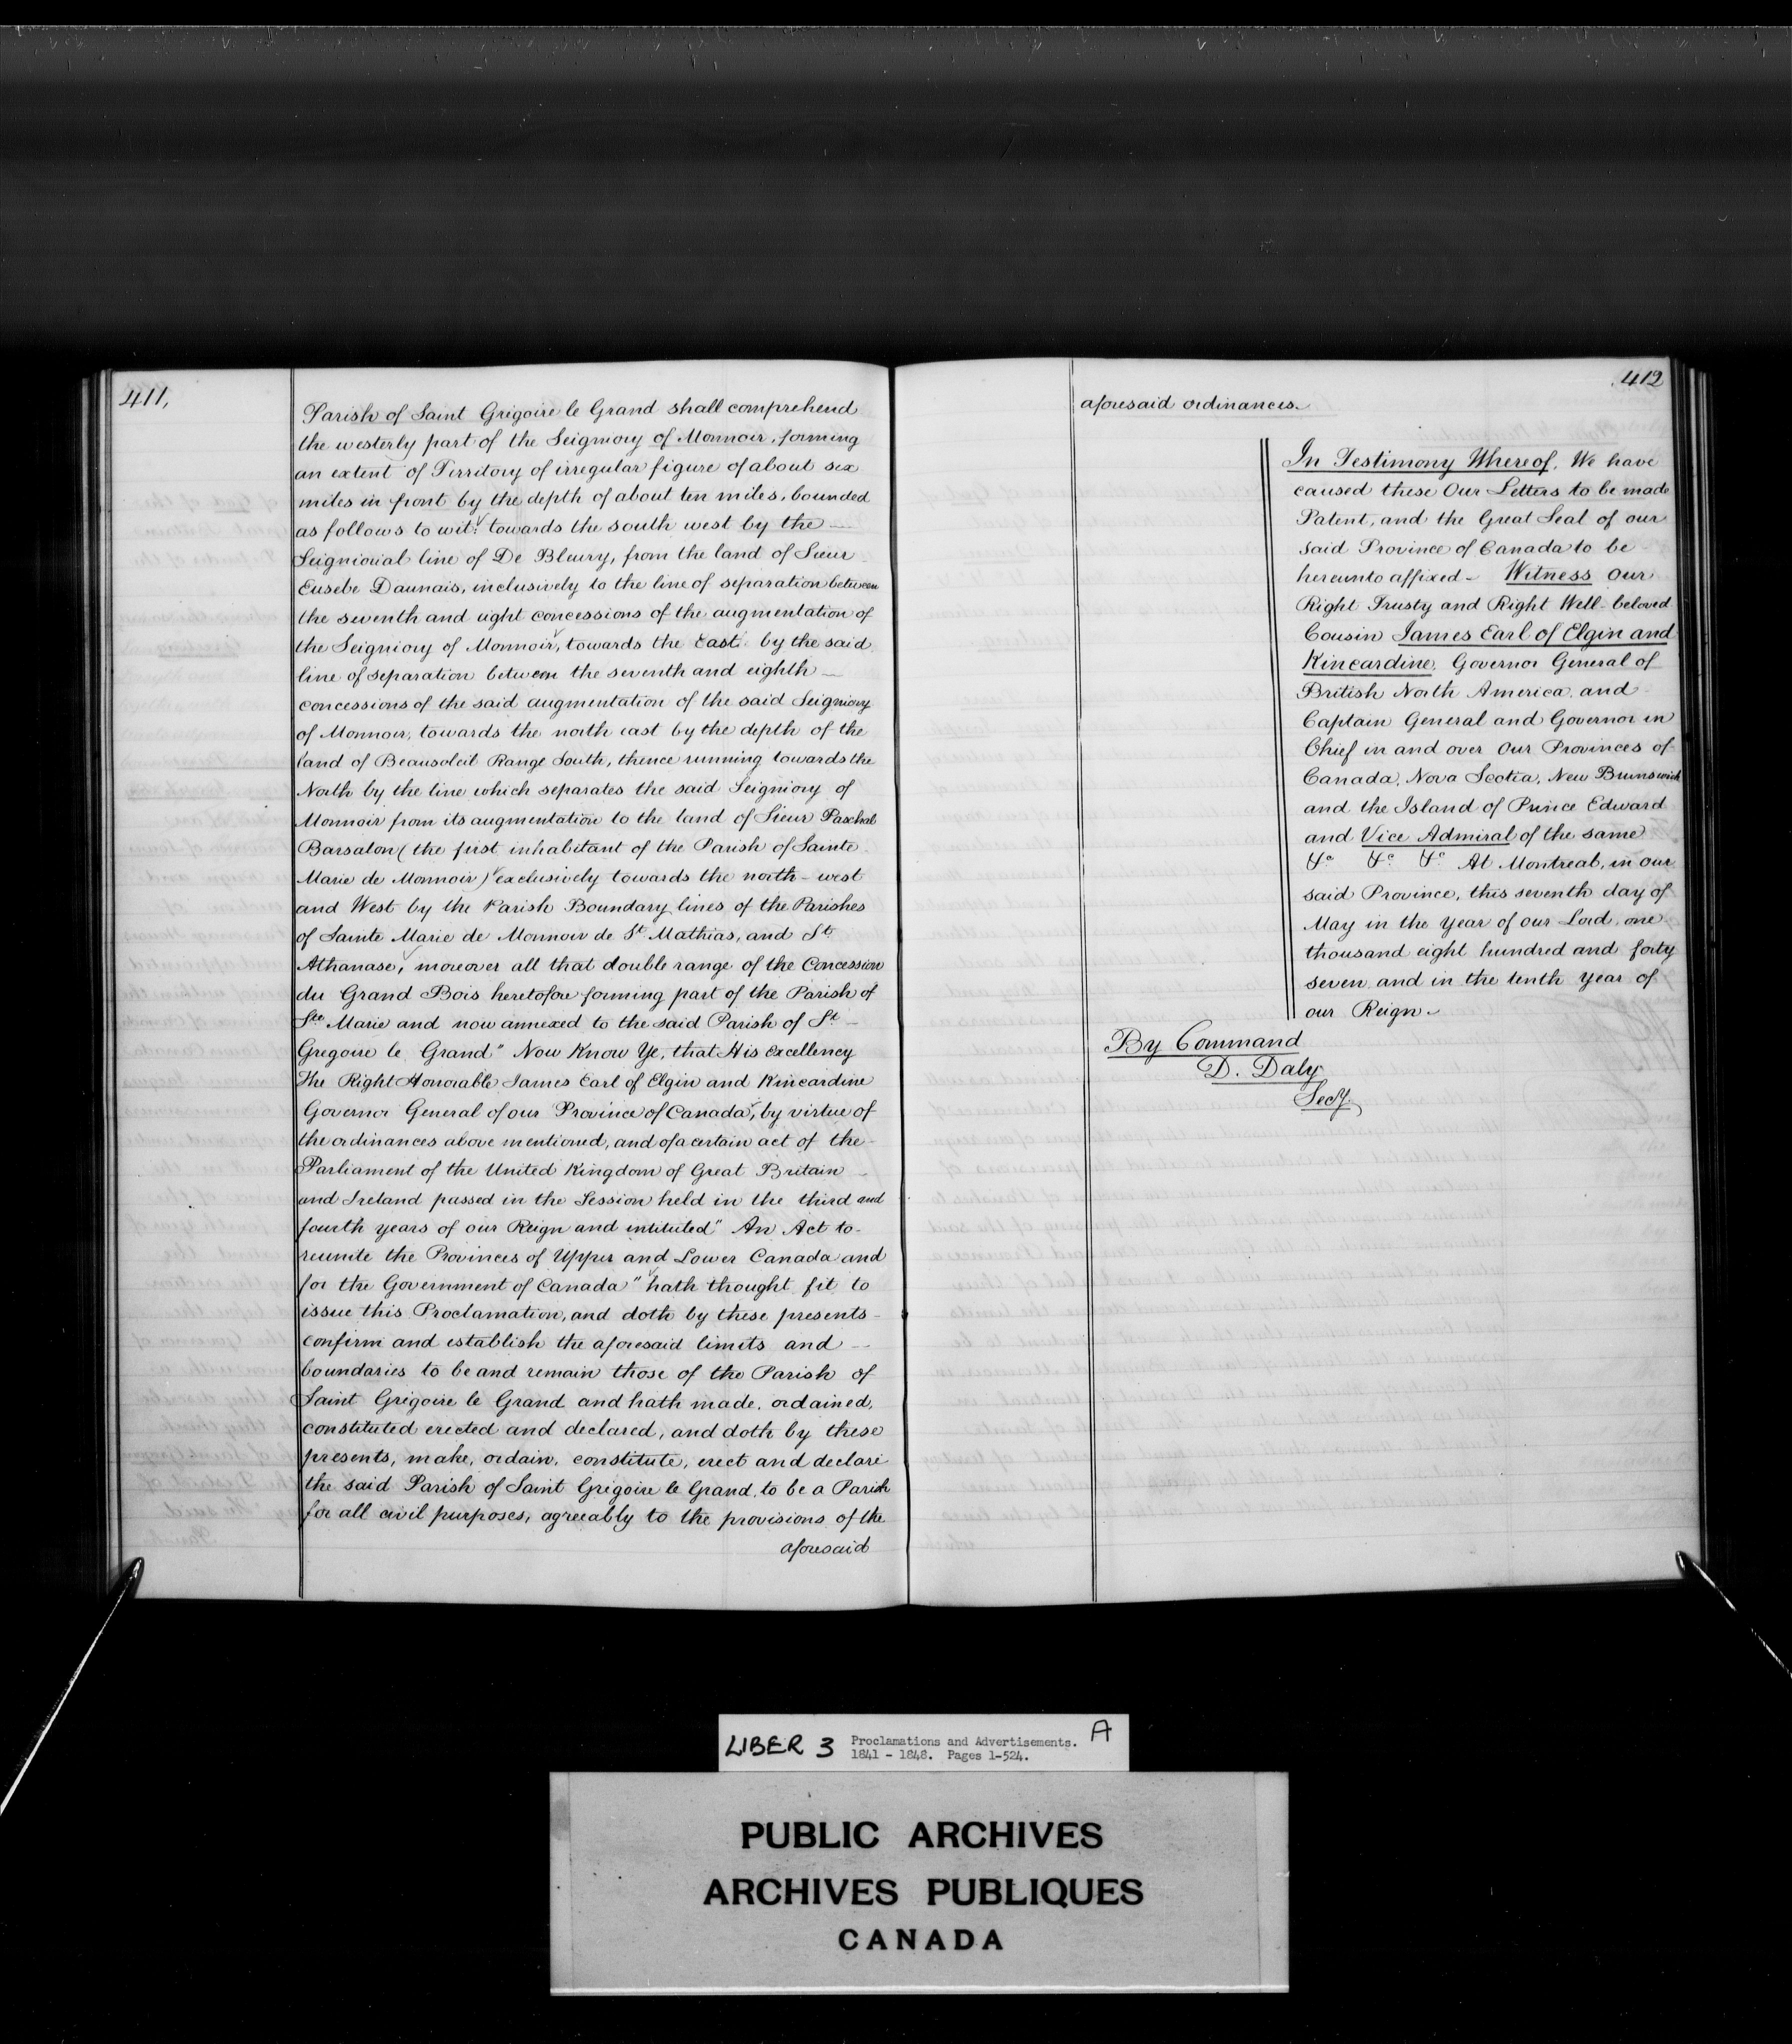 411,
Parish of Saint Grégoire le Grand shall comprehend
the westerly part of the Seigniory of Monnoir, forming
an extent of Territory of irregular figure of about six
miles in front by the depth of about ten miles, bounded
as follows to wit: towards the south west by the —
Seigniorial line of De Bleury, from the land of Sieur
Eusebe Daunais, inclusively to the line of separation between
the seventh and eight concessions of the augmentation of
the Seigniory of Monnoir, towards the East by the said
line of separation between the seventh and eighth —
concessions of the said augmentation of the said Seigniory
of Monnoir, towards the north east by the depth of the
land of Beausoleil Range South, thence running towards the
North by the line which separates the said Seigniory of
Monnoir from its augmentation to the land of Sieur Paschal
Barsalon (the first inhabitant of the Parish of Sainte
Marie de Monnoir) exclusively towards the north-west
and West by the Parish Boundary lines of the Parishes
of Sainte Marie de Monnoir de St Mathias, and St
Athanase, moreover all that double range of the Concession
du Grand Bois heretofore forming part of the Parish of
Ste Marie and now annexed to the said Parish of St —
Gregoire le Grand" Now Know Ye, that His Excellency
The Right Honorable James Earl of Elgin and Kincardine
Governor General of our Province of Canada, by virtue of
the ordinances above mentioned, and of a certain act of the -
Parliament of the United Kingdom of Great Britain —
and Ireland passed in the Session held in the third and
fourth years of our Reign and intituled "An Act to -
reunite the Provinces of Upper and Lower Canada and
for the Government of Canada" hath thought fit to
issue this Proclamation, and doth by these presents -
confirm and establish the aforesaid limits and —
boundaries to be and remain those of the Parish of
Saint Grégoire le Grand and hath made, ordained,
constituted erected and declared, and doth by these
presents, make, ordain, constitute, erect and declare
the said Parish of Saint Grégoire le Grand, to be a Parish
for all civil purposes, agreeably to the provisions of the
aforesaid
412
aforesaid ordinances.
In Testimony Whereof, We have
caused these Our Letters to be made
Patent, and the Great Seal of our
said Province of Canada to be
hereunto affixed - Witness our
Right Trusty and Right Well-beloved
Cousin James Earl of Elgin and
Kincardine, Governor General of
British North America, and
Captain General and Governor in
Chief in and over our Provinces of
Canada, Nova Scotia, New Brunswick
and the Island of Prince Edward
and Vice Admiral of the same
&c &c &c At Montreal, in our
said Province, this seventh day of
May in the year of our Lord, one
thousand eight hundred and forty
seven and in the tenth year of
our Reign.
By Command
D. Daly
Secy.
LIBER 3 Proclamations and Advertisements. A
1841 - 1848. Pages 1-524.
PUBLIC ARCHIVES
ARCHIVES PUBLIQUES
CANADA